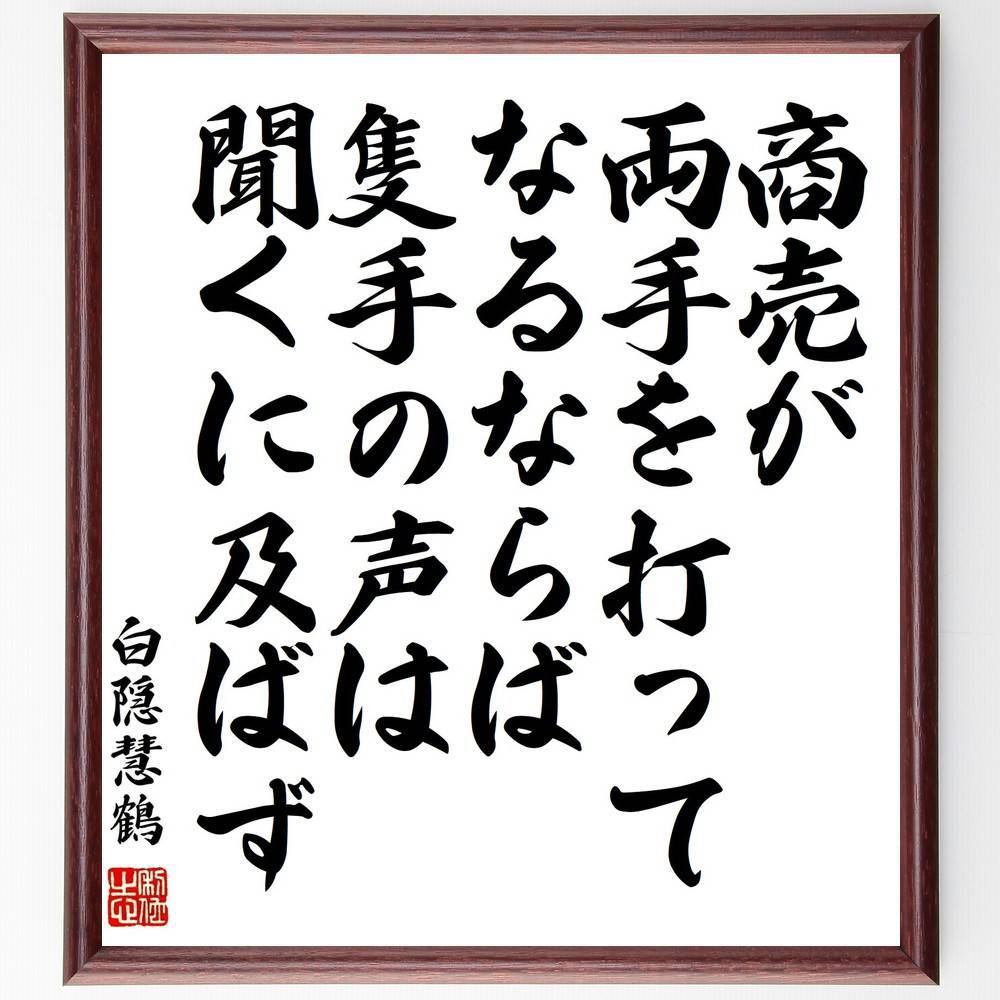 商売が
両手を打って
なるならば
隻手の声は
聞くに及ばず
白隠慧鶴